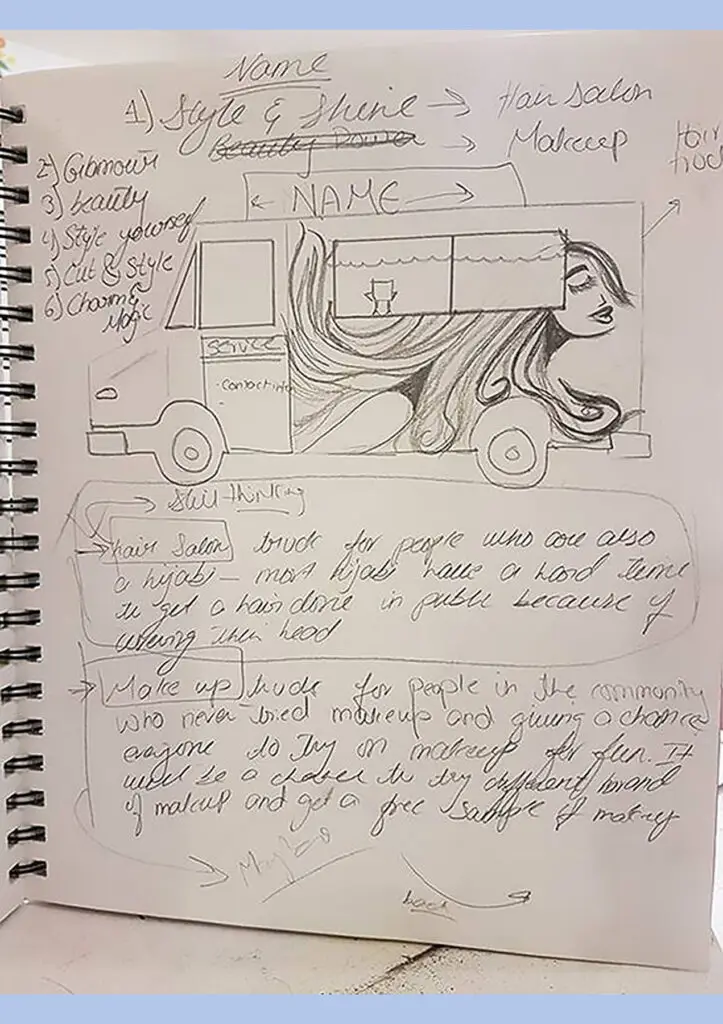 Name
1) Style & Shine → Hair Salon
Beauty Power → Makeup
Hair
truck
2) Glamour
3) beauty
4) Style yourself
5) Cut & Style
6) Charm &
Magic
← NAME →
Service
· Contact info
→ Still thinking
→ hair Salon truck for people who are also
a hijabi – most hijabi have a hard time
to get a hair done in public because of
their head
→ Make up truck for people in the community
who never tried makeup and giving a chance
everyone to Try on makeup for fun. It
will be a chance to try different brand
of makeup and get a free sample of makeup
back